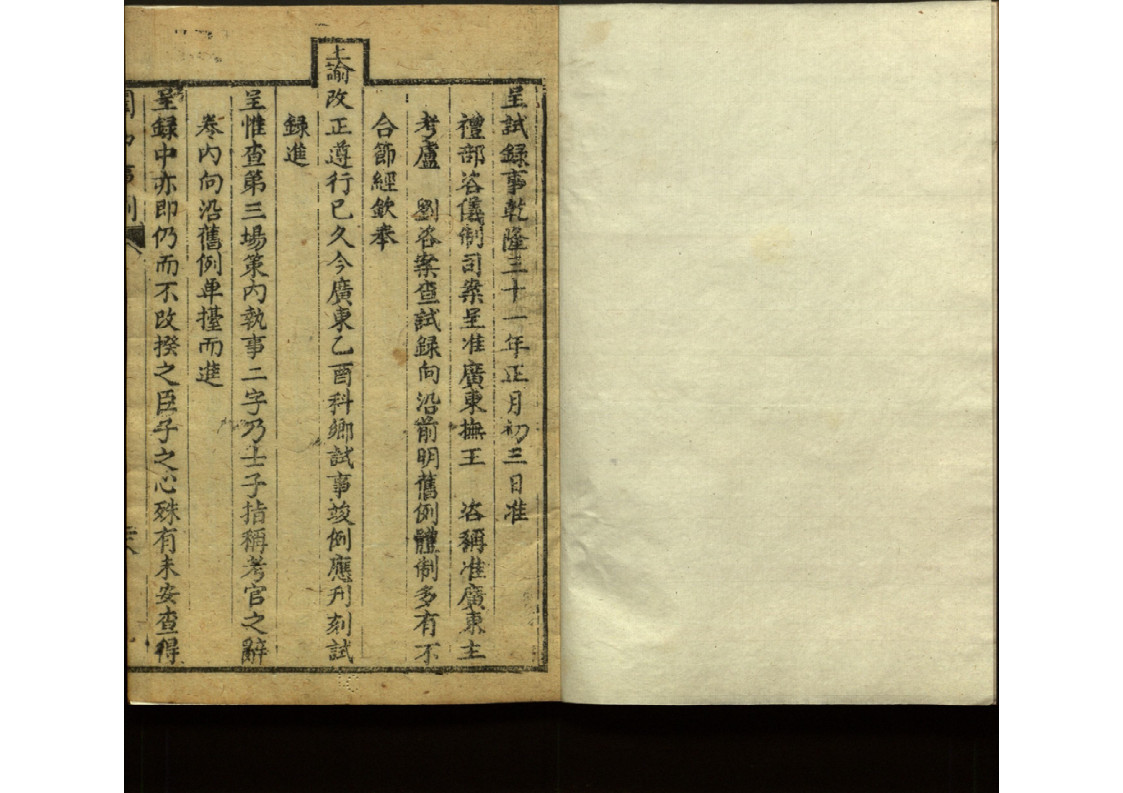 呈試録事乾隆三十一年正月初三日准
禮部咨儀制司案呈准廣東撫王 咨稱准廣東主
考盧 劉咨案查試録向沿前明舊例體制多有不
合節經欽奉
上諭改正遵行已久今廣東乙酉科鄉試事竣例應刋刻試
録進
呈惟查第三場策内執事二字乃士子指稱考官之辭
卷内向沿舊例单擡而進
呈録中亦即仍而不改揆之臣子之心殊有未安查得